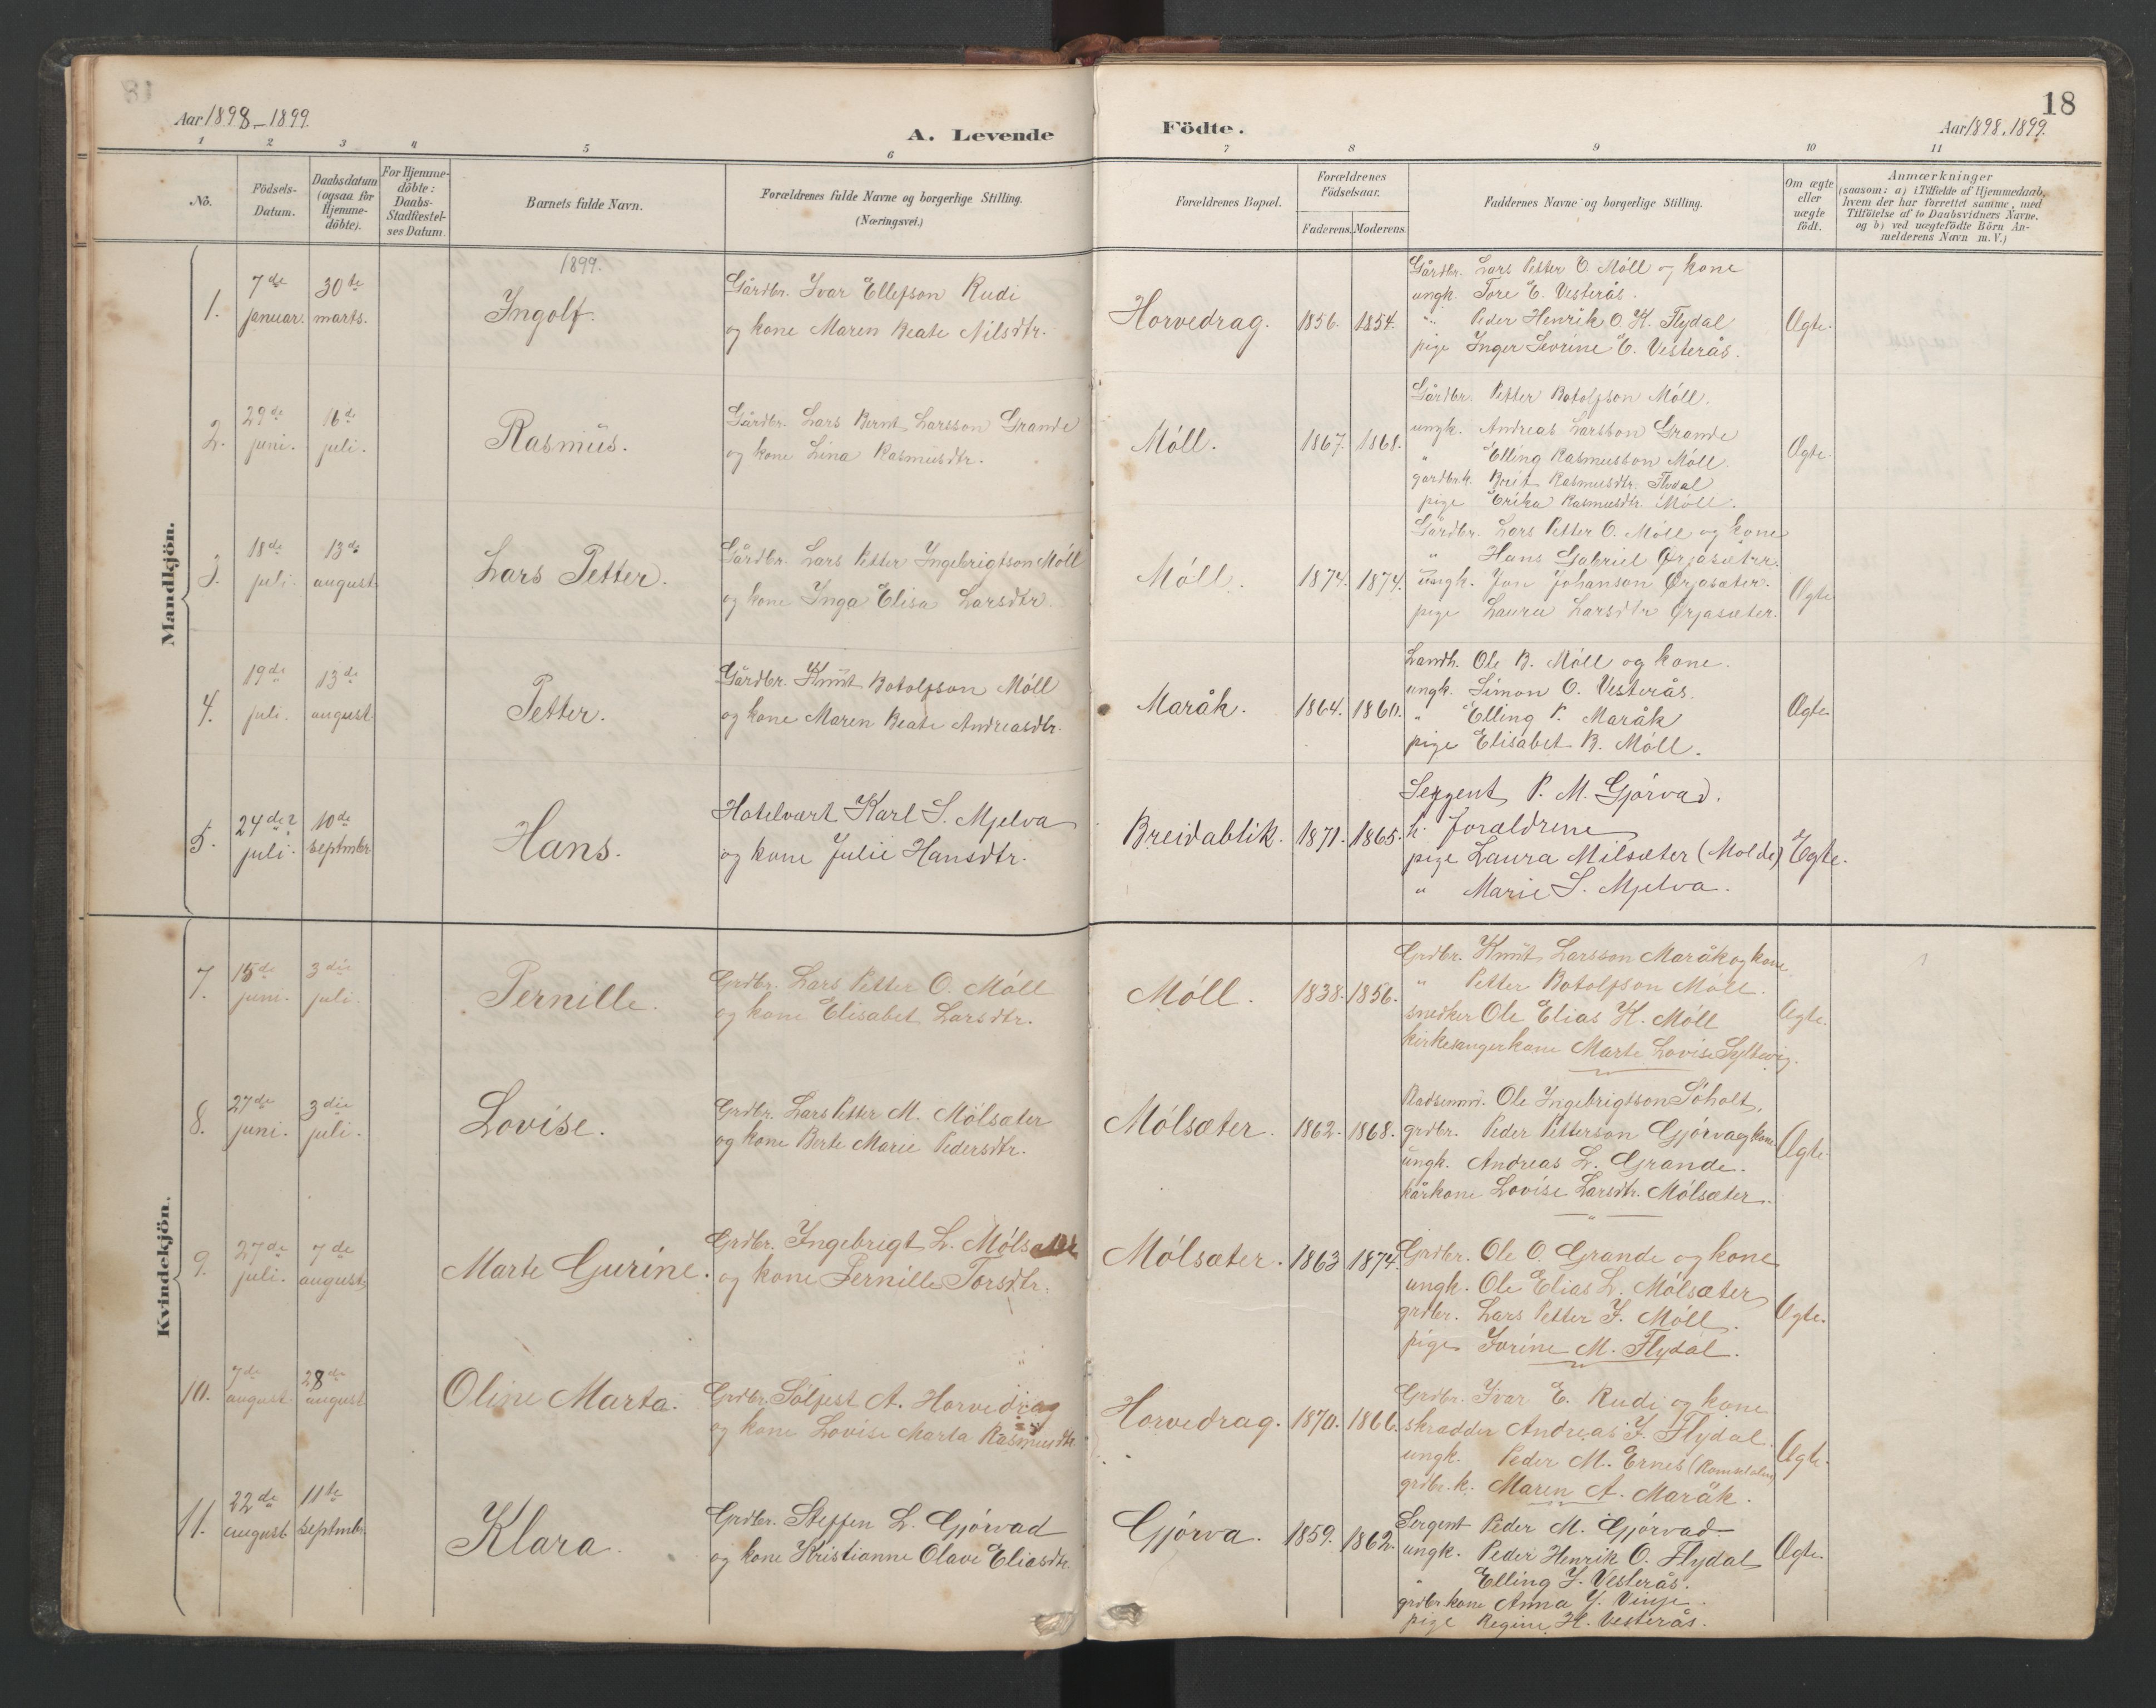 18
Aar 1898-1899.
A. Levende Födte.
Aar 1898. 1899.
1 2 3 4 5 6 7 8 9 10 11
No.
Födsels-
Datum.
Daabsdatum
(ogsaa for
Hjemme-
döbte).
For Hjemme-
döbte:
Daabs-
Stadfæstel-
ses Datum.
Barnets fulde Navn.
Forældrenes fulde Navne og borgerlige Stilling.
(Næringsvei.)
Forældrenes Bopæl.
Forældrenes
Födselsaar.
Faderens. Moderens.
Faddernes Navne og borgerlige Stilling.
Om ægte
eller
uægte
födt.
Anmærkninger
(saasom: a) i Tilfælde af Hjemmedaab,
hvem der har forrettet samme, med
Tilföielse af to Daabsvidners Navne.
og b) ved uægtefödte Börn An-
melderens Navn m. V.)
Mandkjön.
1899.
1.
7de
januar.
30te
marts.
Ingolf.
Gårdbr. Ivar Ellefson Rudi
og kone Maren Beate Nilsdtr.
Horvedrag.
1856. 1854.
Gårdbr. Lars Petter O. Möll og kone
ungk. Tore E. Vesterås.
" Peder Henrik O. K. Flydal
pige Inger Severine E. Vesterås.
Ægte.
2.
29de
juni.
16de
juli.
Rasmus.
Gårdbr. Lars Bernt Larsson Grande
og kone Lina Rasmusdtr.
Möll.
1867. 1868.
Gårdbr. Petter Botolfson Möll.
ungk. Andreas Larsson Grande
" Elling Rasmusson Möll.
gardbr.k. Berit Rasmusdtr. Flydal
pige Erika Rasmusdtr. Möll.
Ægte.
3.
18de
juli.
13de
august.
Lars Petter.
Gårdbr. Lars Petter Ingebrigtson Möll
og kone Inga Elisa Larsdtr.
Möll.
1874. 1874.
Gårdbr. Lars Petter O. Möll og kone
" Hans Gabriel Ørjasæter.
ungk. Jon Johanson Ørjasæter.
pige Laura Larsdtr Ørjasæter.
Ægte
4.
19de
juli.
13de
august
Petter.
Gårdbr. Knut Botolfson Möll
og kone Maren Beate Andreasdtr.
Maråk.
1864. 1860.
Landh. Ole B. Möll og kone.
ungk. Simon O. Vesterås.
" Elling P. Maråk
pige Elisabet B. Möll.
Ægte
5.
24de?
juli.
10de
september
Hans.
Hotelvært Karl S. Mjelva
og kone Julie Hansdtr.
Breidablik.
1871. 1865.
Sergent P. M. Gjörvad.
h. foraldrene
pige Laura Milsæter (Molde)
" Marie S. Mjelva.
Ægte.
Kvindekjön.
7.
15de
juni.
3die
juli.
Pernille.
Grdbr. Lars Petter O. Möll
og kone Elisabet Larsdtr.
Möll.
1838. 1856.
Grdbr. Knut Larsson Maråk og kone
" Petter Botolfson Möll.
snedker Ole Elias K. Möll
kirkesangerkone Marte Lovise Sylte
Ægte.
8.
27de
juni.
3die
juli.
Lovise.
Grdbr. Lars Petter M. Mölsæter
og kone Berte Marie Pedersdtr.
Mölsæter.
1862. 1868.
Pladsemnd. Ole Ingebrigtson Söholt,
grdbr. Peder Petterson Gjörva og kone
ungk. Andreas L. Grande.
kårkone Lovise Larsdtr. Mölsæter.
Ægte.
9.
27de
juli.
7de
august.
Marte Gurine.
Grdbr. Ingebrigt L. Mölsæter
og kone Pernille Torsdtr.
Mölsæter.
1863 1874.
Grdbr. Ole O. Grande og kone
ungk. Ole Elias L. Mölsæter
grdbr. Lars Petter I. Möll.
pige Ivrine M. Flydal.
Ægte.
10.
7de
august.
28de
august
Oline Marta.
Grdbr. Sölfest A. Horvedrag
og kone Lovise Marta Rasmusdtr
Horvedrag.
1870. 1866.
Grdbr. Ivar E. Rudi og kone
skrædder Andreas I. Flydal
ungk. Peder M. Ernes (Romsdalen)
grdbr.k. Maren A. Maråk.
Ægte.
11.
22de
august
11te
septmbr.
Klara.
Grdbr. Steffen L. Gjörvad
og kone Kristianne Olave Eliasdtr.
Gjörva.
1859. 1862.
Sergent Peder M. Gjörvad
ungk. Peder Henrik O. Flydal
" Elling I. Vesterås.
grdbr.kone Anna Y. Vinje.
pige Regine H. Vesterås.
Ægte